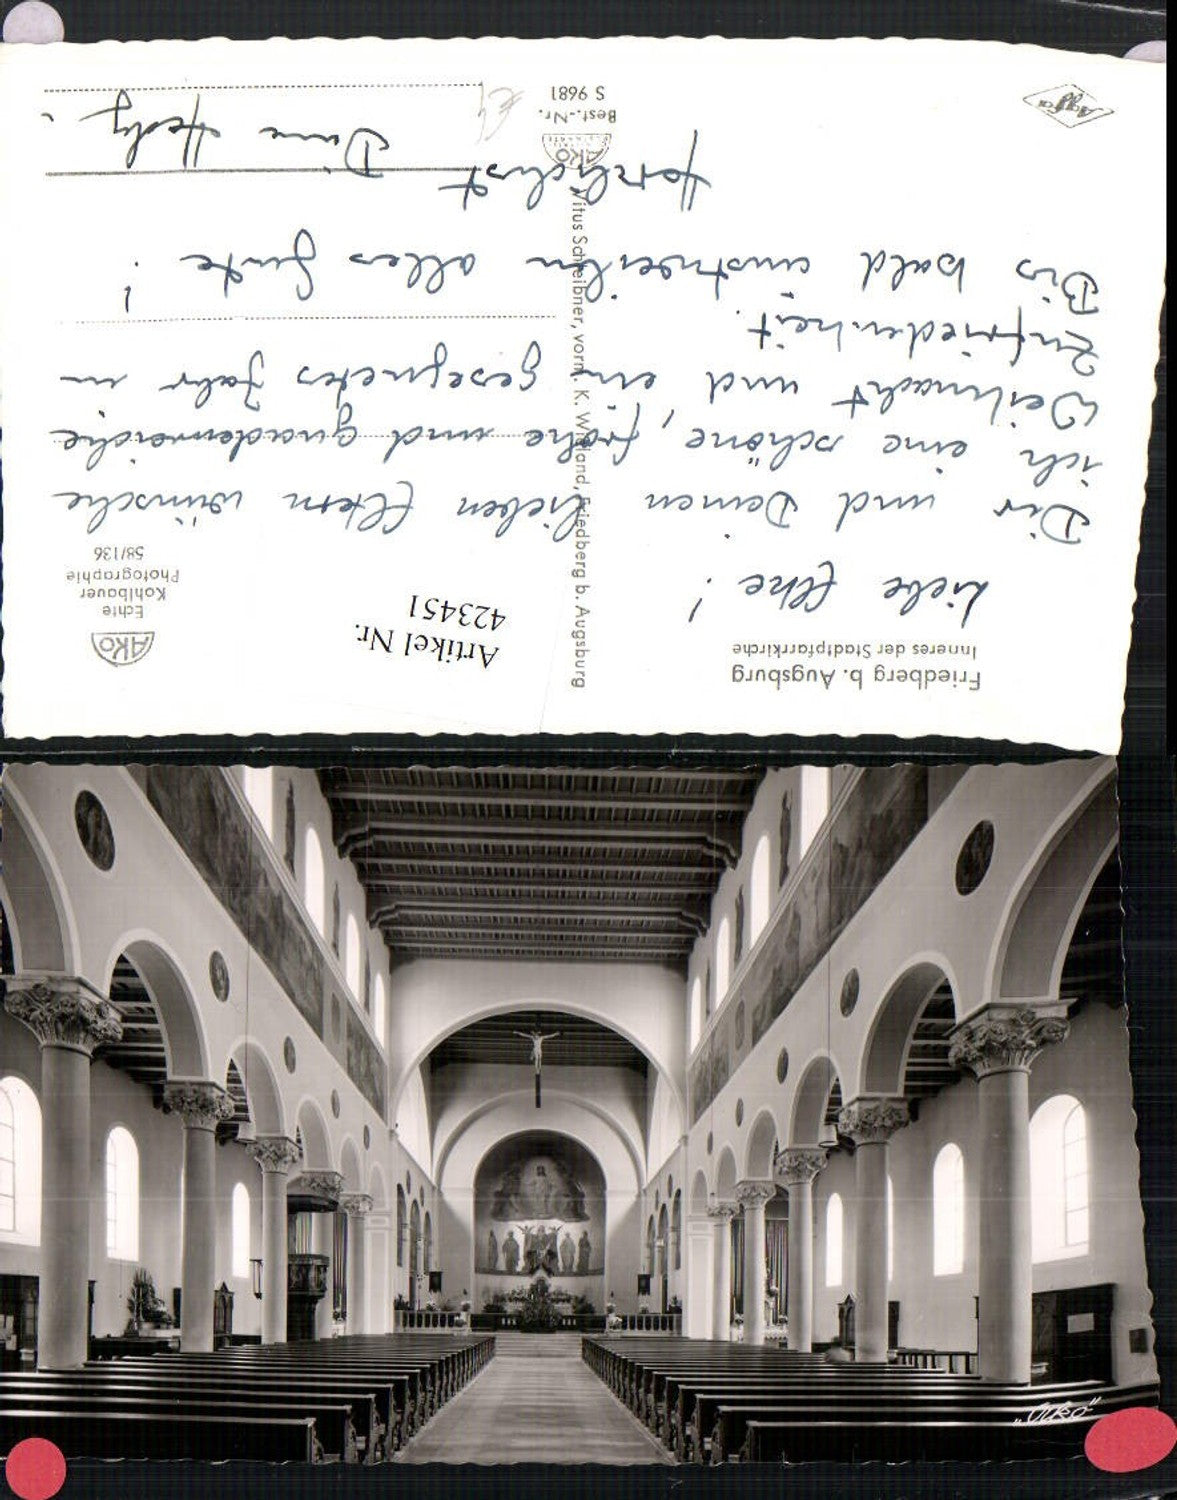 Friedberg b. Augsburg
Inneres der Stadtpfarrkirche
Liebe Elke!
Dir und Deinen lieben Eltern wünsche
ich eine schöne, frohe und gnadenreiche
Weihnacht und ein gesegnetes Jahr in
Zufriedenheit.
Bis bald einstweilen alles Gute!
Herzlichst Deine Hedy.
Artikel Nr.
423451
AKO
Echte
Kohlbauer
Photographie
58/136
Vitus Schreibner, vorm. K. Wieland, Friedberg b. Augsburg
AKO
Best.-Nr.
S 9681
Agfa